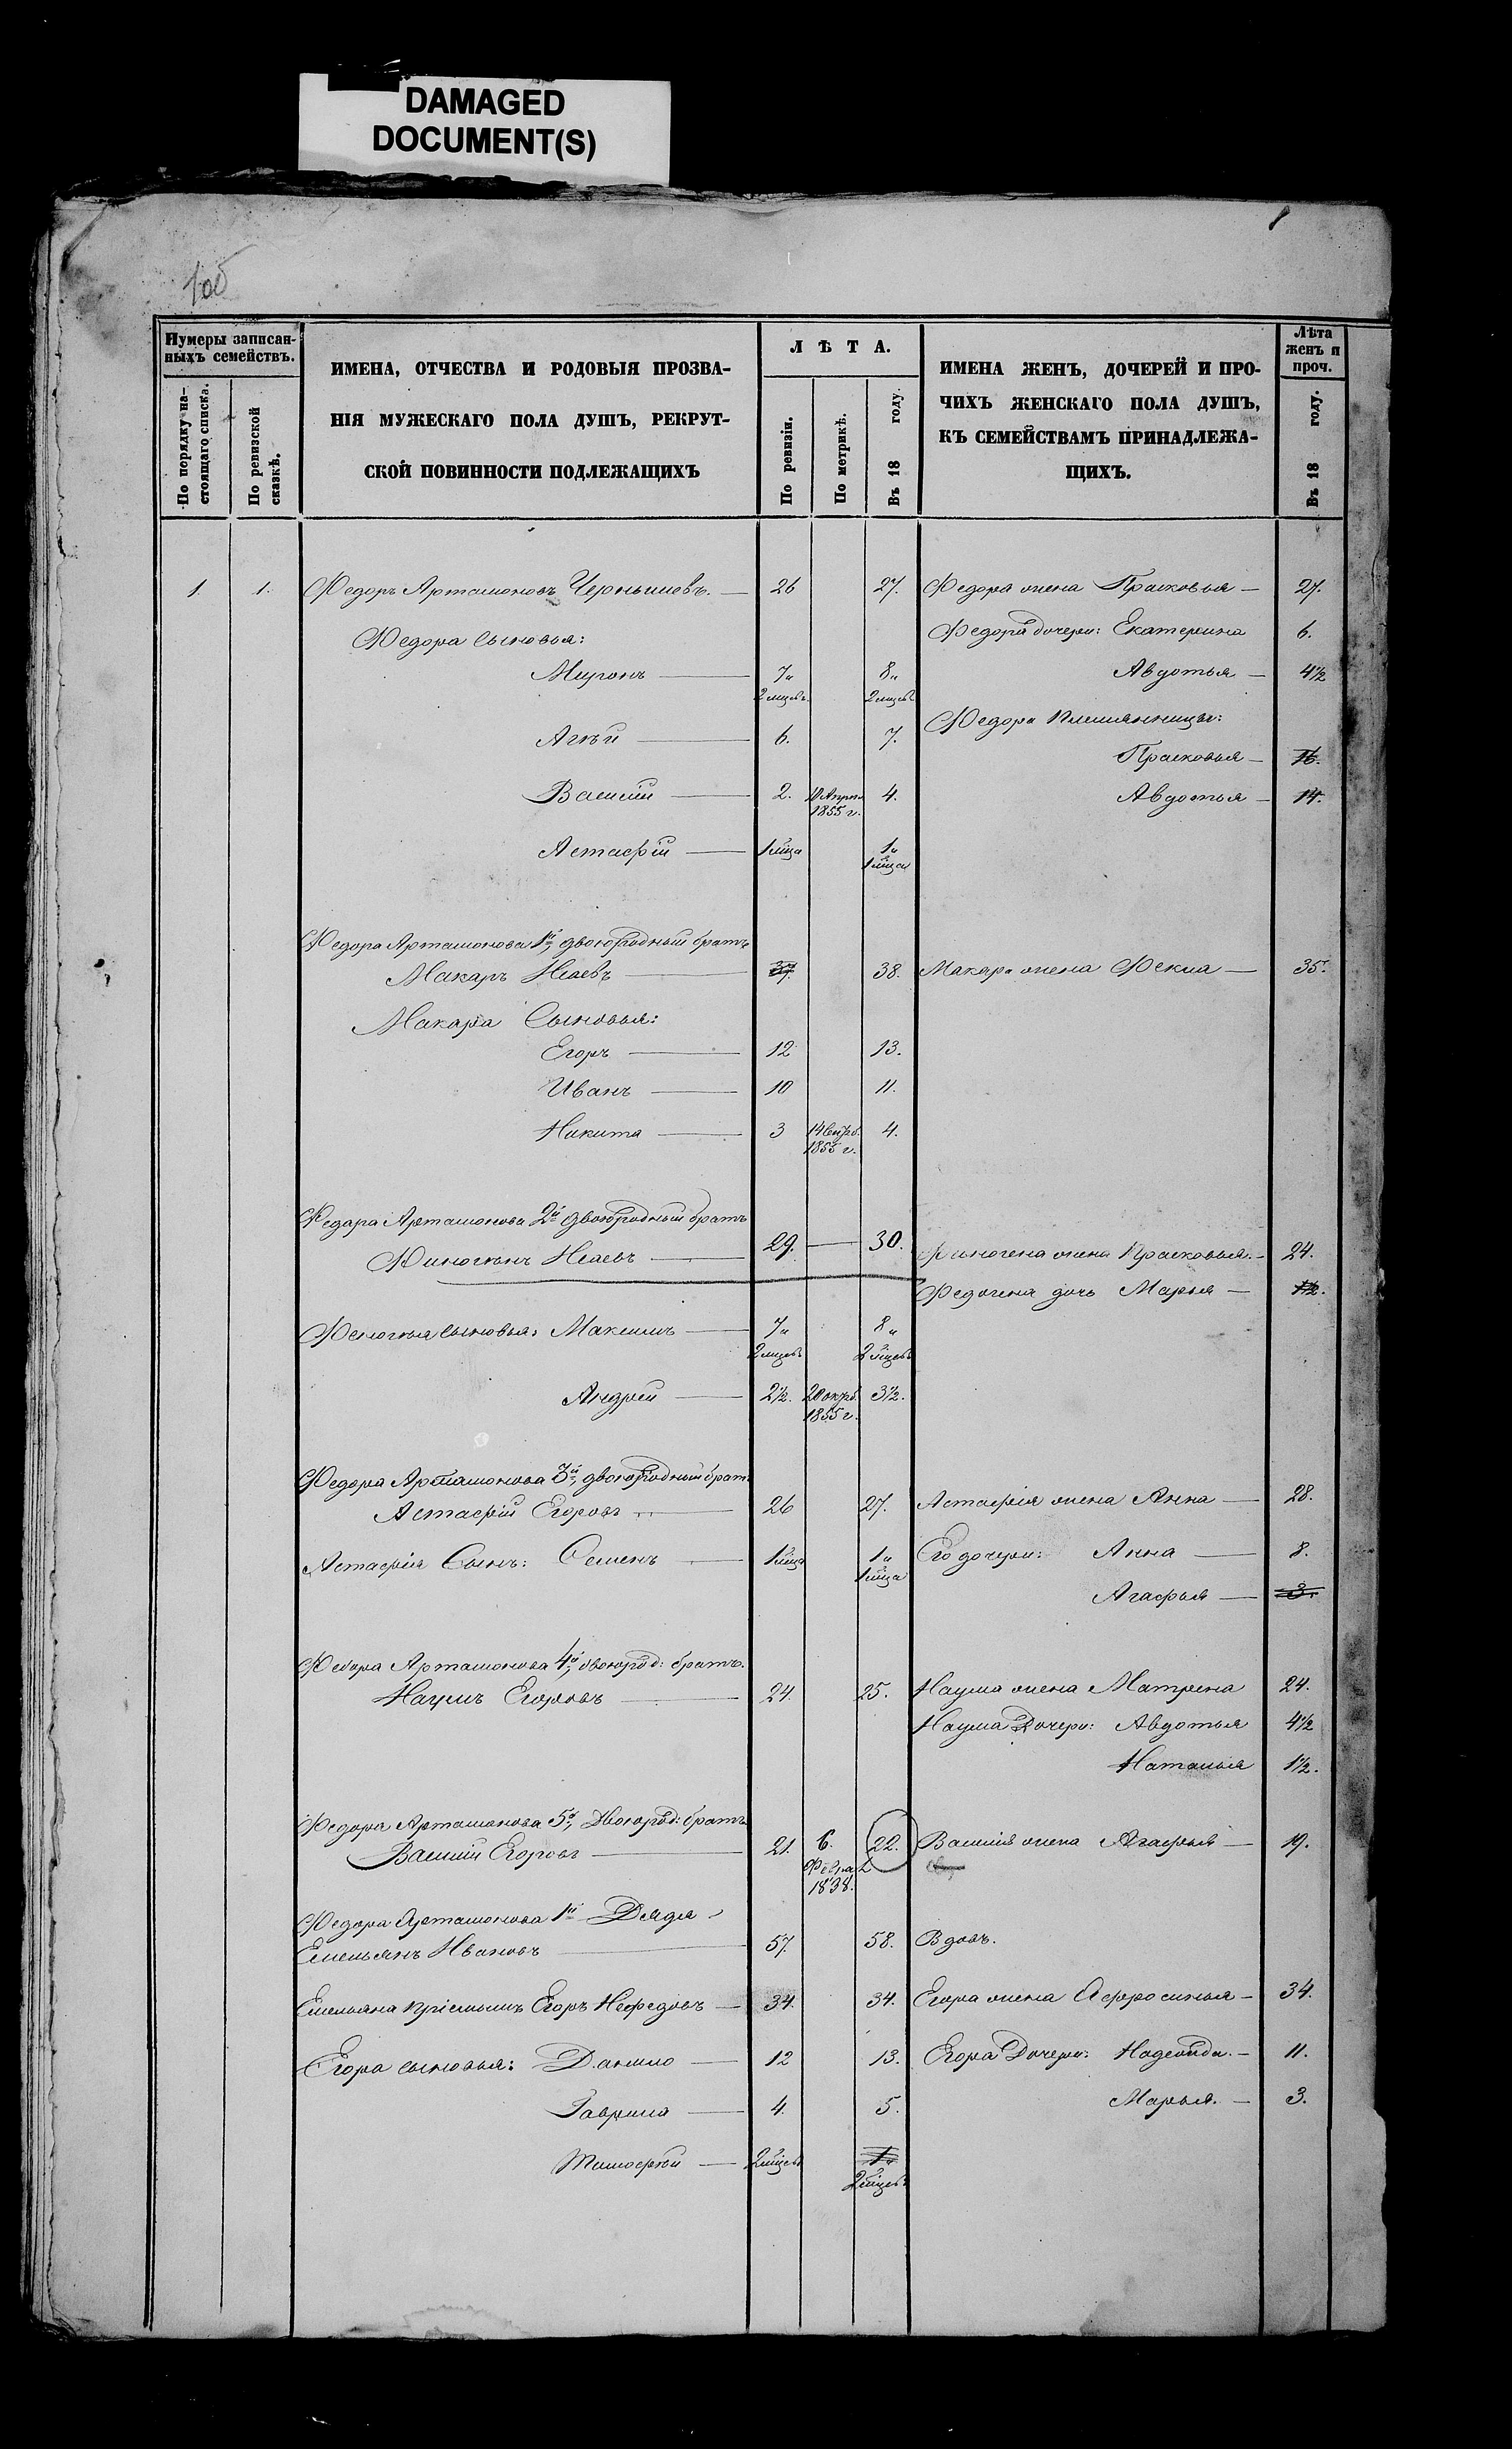 DAMAGED
DOCUMENT(S)
1
1об
Нумеры записан-
ныхъ семействъ.
По порядку на-
стоящаго списка.
По ревизской
сказкѣ.
ИМЕНА, ОТЧЕСТВА И РОДОВЫЯ ПРОЗВА-
НІЯ МУЖЕСКАГО ПОЛА ДУШЪ, РЕКРУТ-
СКОЙ ПОВИННОСТИ ПОДЛЕЖАЩИХЪ
ЛѢТА.
По ревизіи.
По метрикѣ.
Въ 18 году.
ИМЕНА ЖЕНЪ, ДОЧЕРЕЙ И ПРО-
ЧИХЪ ЖЕНСКАГО ПОЛА ДУШЪ,
КЪ СЕМЕЙСТВАМЪ ПРИНАДЛЕЖА-
ЩИХЪ.
Лѣта
женъ и
проч.
Въ 18 году.
1 1. Федоръ Артамоновъ Чернышевъ. — 26 27. Федора жена Прасковья — 27.
Федора сыновья: Федора дочери: Екатерина 6.
Миронъ — 7" 8" Авдотья — 4½
2 мцевъ. 2 мцевъ
Федора племянницы:
Агѣй — 6. 7.
Прасковья — 16.
Василій — 2. 10 Апрѣл 4. Авдотья — 14.
1855 г.
Астафій — 1 мца 1"
1 мца
Федора Артамонова 1й, двоюродный братъ
Макаръ Исаевъ — 37. 38. Макара жена Фекла — 35.
Макара Сыновья:
Егоръ — 12 13.
Иванъ — 10 11.
Никита — 3 14 Сентяб. 4.
1855 г.
Федора Артамонова 2й двоюродный братъ
Финогенъ Исаевъ — 29. — 30. Финогена жена Прасковья. — 24.
дочь Марья — 1½.
сыновья: Максимъ — 7" 8"
2 мцевъ 2 мцевъ
Андрей — 2½. 20 октяб. 3½.
1855 г.
Федора Артамонова 3й, двоюродный братъ
Астафій Егоровъ — 26 27. Астафія жена Анна — 28.
Астафія Сынъ: Семенъ — 1 мца 1" Его дочери: Анна — 8.
1 мца
Агафья — 3.
Федора Артамонова 4й, двоюрод: братъ.
Наумъ Егоровъ — 24. 25. Наума жена Матрена 24.
Наума Дочери: Авдотья 4½
Наталья 1½.
Федора Артамонова 5й, Двоюрод: братъ
Василій Егоровъ — 21. 6. 22. Василія жена Агафья — 19.
Феврал
1838.
Федора Артамонова 1й Дядя
Емельянъ Ивановъ — 57. 58. Вдовъ.
Емельяна пріемышъ Егоръ Нефедовъ — 34. 34. Егора жена Афросинья — 34.
Егора сыновья: Данило — 12 13. Егора Дочери: Надежда. — 11.
Гаврила — 4. 5. Марья. — 3.
Тимофей — 2 мцевъ 1"
2 мцевъ